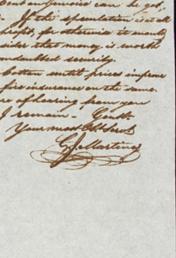 can be got.
If the speculation is at all
for otherwise
sider that money is worth
undoubted security.
Cotton until prices improve
fire insurance on the same.
re of hearing from you
I remain - Gentn.
Your most Obt Servt
G J Martins